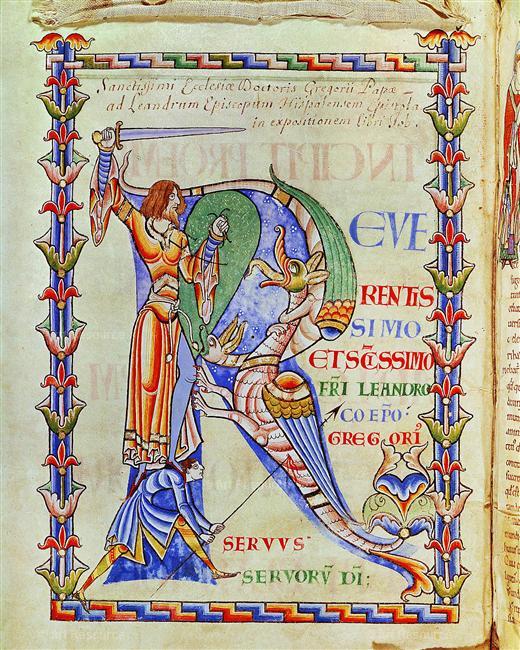 Sanctissimi Ecclesiæ Doctoris Gregorii Papæ
ad Leandrum Episcopum Hispalensem Epistola
in expositionem libri Iob.
INCIPIT PROEM
R
EVE
RENTIS
SIMO
ET SC̅ISSIMO
FR̅I LEANDRO
COEP̅O:
GREGORI'
SERVVS
SERVORV̅ DI̅: